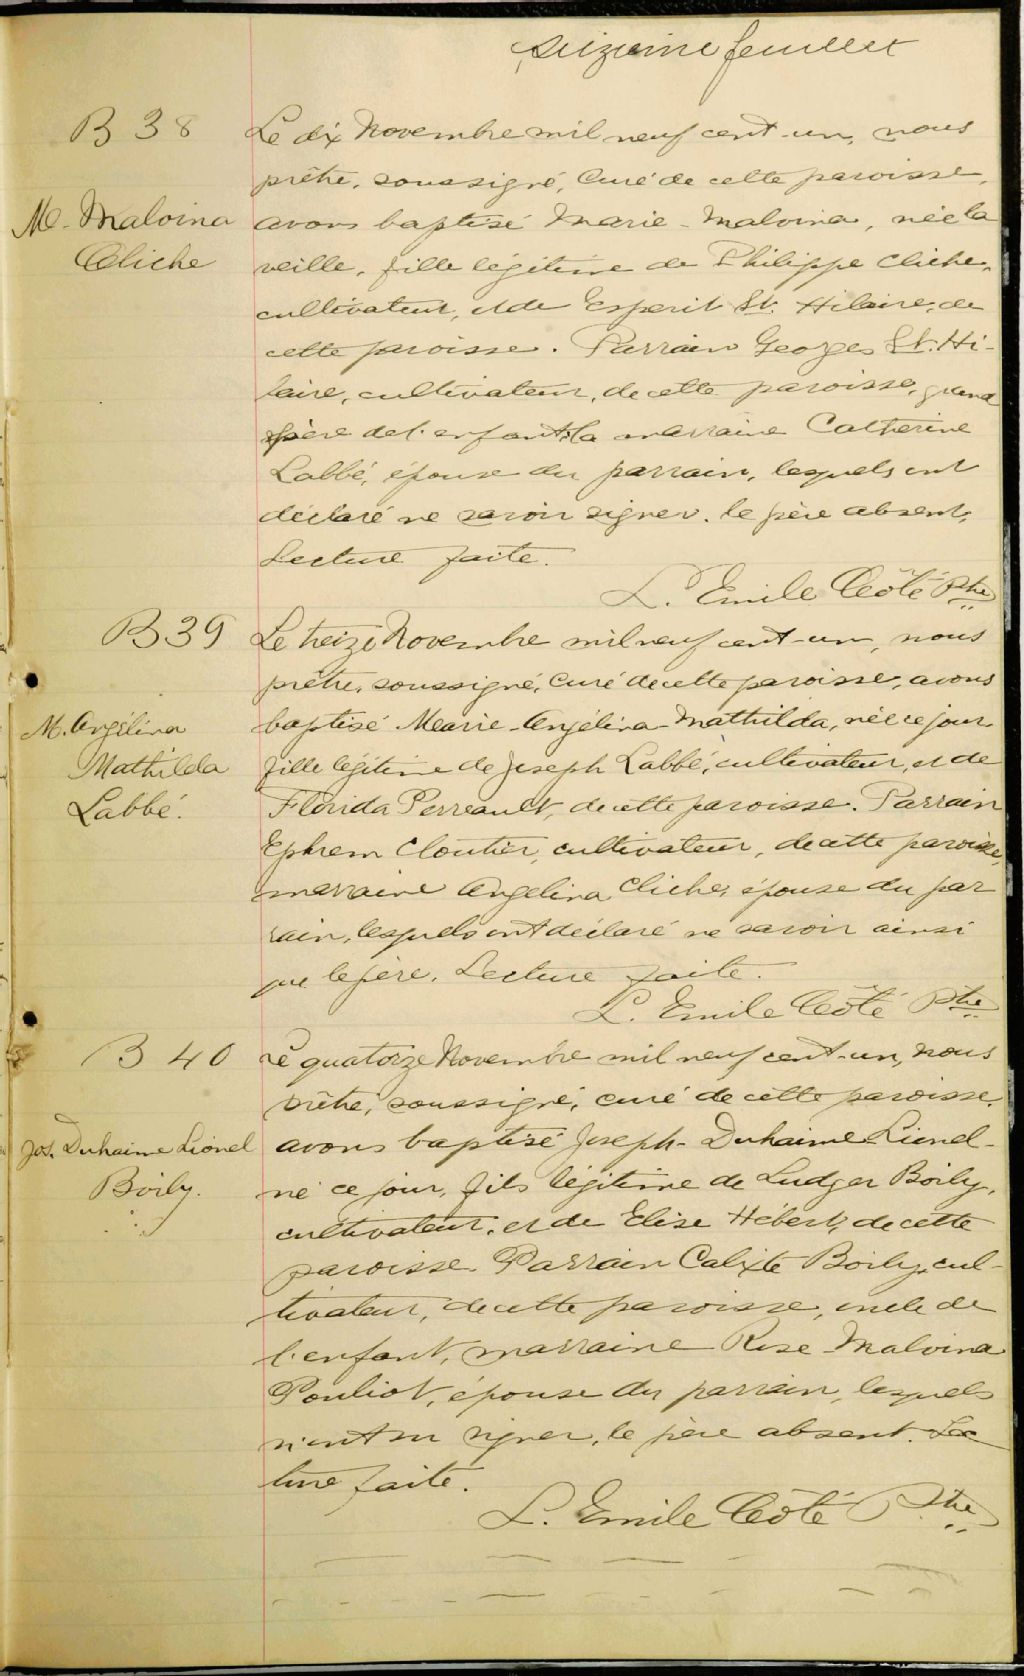 seizième feuillet
B 38
Le dix Novembre mil neuf cent-un, nous
prêtre, soussigné, Curé de cette paroisse,
M. Malvina
avons baptisé Marie-Malvina, née la
Cliche
veille, fille légitime de Philippe Cliche,
cultivateur, et de Esperit St. Hilaire, de
cette paroisse. Parrain Georges St. Hi-
laire, cultivateur, de cette paroisse, grand
père de l'enfant; la marraine Catherine
Labbé, épouse du parrain, lesquels ont
déclaré ne savoir signer. le père absent,
Lecture faite.
L. Emile Côté Ptre
B 39
Le treize Novembre mil neuf cent-un, nous
prêtre, soussigné, Curé de cette paroisse, avons
M. Angélina
baptisé Marie-Angélina-Mathilda, née ce jour
Mathilda
fille légitime de Joseph Labbé, cultivateur, et de
Labbé.
Florida Perreault, de cette paroisse. Parrain
Ephrem Cloutier, cultivateur, de cette paroisse,
marraine Angelina Cliche, épouse du par
rain, lesquels ont déclaré ne savoir ainsi
que le père. Lecture faite.
L. Emile Côté Ptre
B 40
Le quatorze Novembre mil neuf cent-un, nous
prêtre, soussigné, curé de cette paroisse.
Jos. Duhaime Lionel
avons baptisé Joseph-Duhaime-Lionel-
Boily.
né ce jour, fils légitime de Ludger Boily,
cultivateur, et de Elise Hébert, de cette
paroisse. Parrain Calixte Boily, cul-
tivateur, de cette paroisse, oncle de
l'enfant, marraine Rose-Malvina
Pouliot, épouse du parrain, lesquels
n'ont su signer, le père absent. Lec
ture faite.
L. Emile Côté Ptre